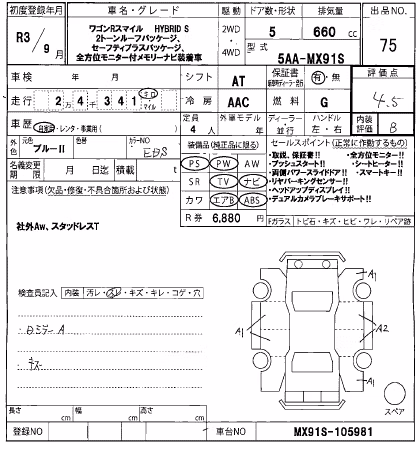 初度登録年月
車名・グレード
駆動
ドア数・形状
排気量
出品NO.
R3/9月
ワゴンRスマイル HYBRID S
2トーンルーフパッケージ、
セーフティプラスパッケージ、
全方位モニター付メモリーナビ装着車
2WD
・
4WD
5
660 cc
75
型式
5AA-MX91S
車検 年 月
シフト
AT
保証書
有・無
評価点
4.5
走行
2万4千341
キロ
マイル
冷房
AAC
燃料
G
車歴
自家用・レンタ・事業用( )
定員
4人
外車モデル
年
ディーラー・並行
ハンドル
左・右
内装評価
B
外色
元色
ブルーII
色替
カラーNO
装備品(純正品に限る)
PS PW AW
SR TV ナビ
カワ エアB ABS
R券 6,880 円
セールスポイント(正常に作動するもの)
・取説、保証書!!
・全方位モニター!!
・プッシュスタート!!
・シートヒーター!!
・両側パワースライドドア!!
・スマートキー!!
・リヤパーキングセンサー!!
・ヘッドアップディスプレイ!!
・デュアルカメラブレーキサポート!!
名義変更期限
月 日迄
積載
t
注意事項(欠品・修復・不具合箇所および状態)
社外Aw、スタッドレスT
Fガラス
トビ石・キズ・ヒビ・ワレ・リペア跡
検査員記入
内装
汚レ・スレ・キズ・キレ・コゲ・穴
A1
A1
A1
A2
A1
スペア
長さ cm
幅 cm
高さ cm
登録NO
車台NO
MX91S-105981